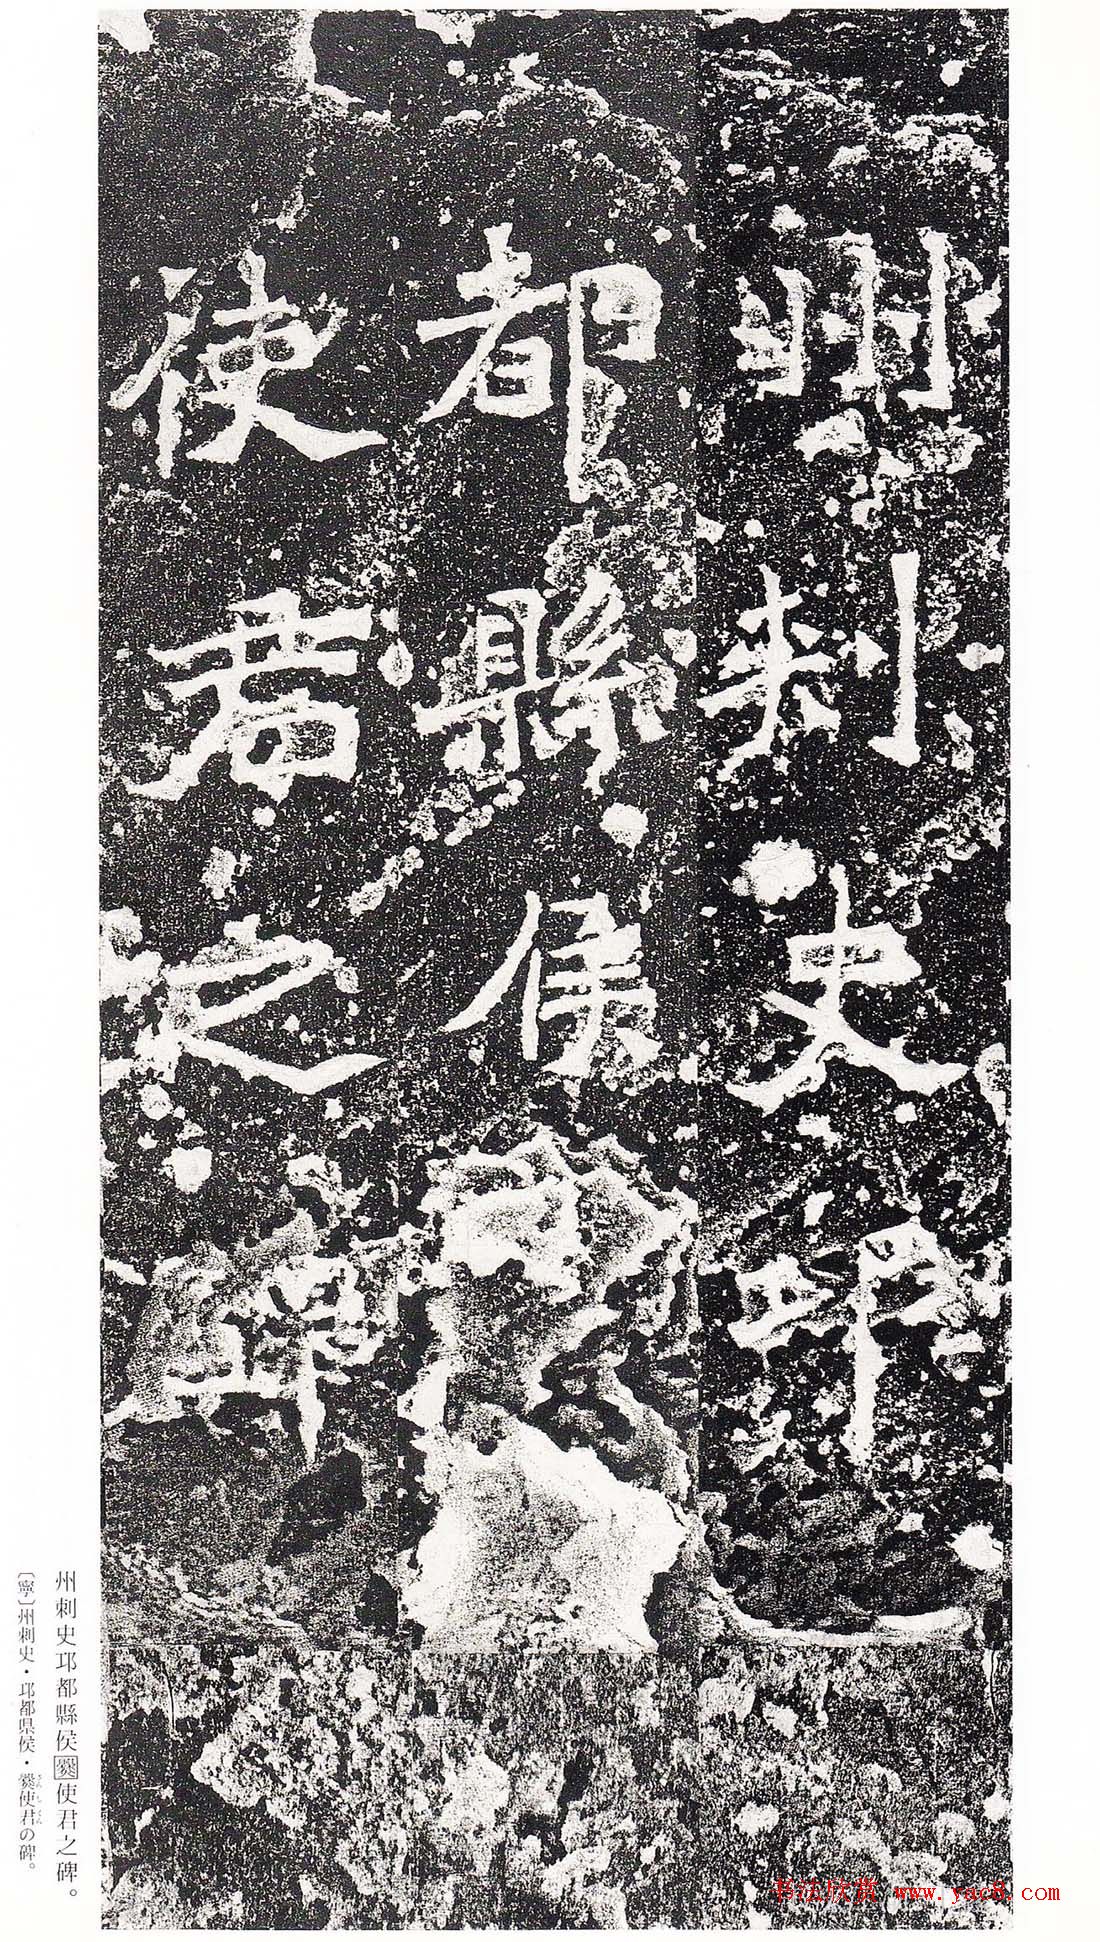 州刺史邛
都縣侯
使君之碑
州刺史邛都縣侯爨使君之碑。
〔寧〕州刺史・邛都県侯・爨使君の碑。
さんしくん
书法欣赏 www.yac8.com